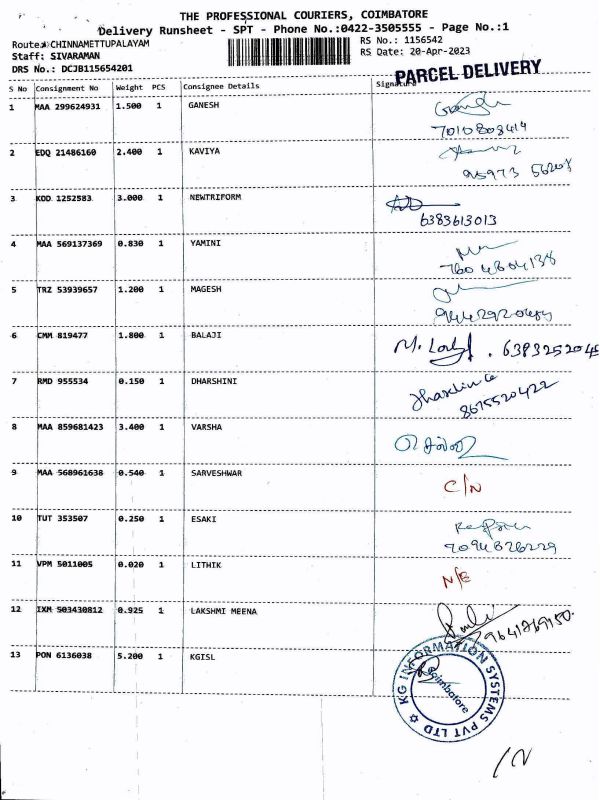 THE PROFESSIONAL COURIERS, COIMBATORE
Delivery Runsheet - SPT - Phone No.:0422-3505555 - Page No.:1
Route: CHINNAMETTUPALAYAM RS No.: 1156542
Staff: SIVARAMAN RS Date: 20-Apr-2023
DRS No.: DCJB115654201
PARCEL DELIVERY
S No Consignment No Weight PCS Consignee Details Signature
1 MAA 299624931 1.500 1 GANESH
7010808414
2 EDQ 21486160 2.400 1 KAVIYA
95973
3 KDD 1252583 3.000 1 NEWTRIFORM
6383613013
4 MAA 569137369 0.830 1 YAMINI
7604804138
5 TRZ 53939657 1.200 1 MAGESH
6 CMM 819477 1.800 1 BALAJI
6383252045
7 RMD 955534 0.150 1 DHARSHINI
8675520422
8 MAA 859681423 3.400 1 VARSHA
9 MAA 568961638 0.540 1 SARVESHWAR
C/N
10 TUT 353507 0.250 1 ESAKI
7094826229
11 VPM 5011005 0.020 1 LITHIK
N/E
12 IXM 503430812 0.925 1 LAKSHMI MEENA
9641769150
13 PON 6136038 5.200 1 KGISL
KG INFORMATION SYSTEMS PVT LTD
Coimbatore